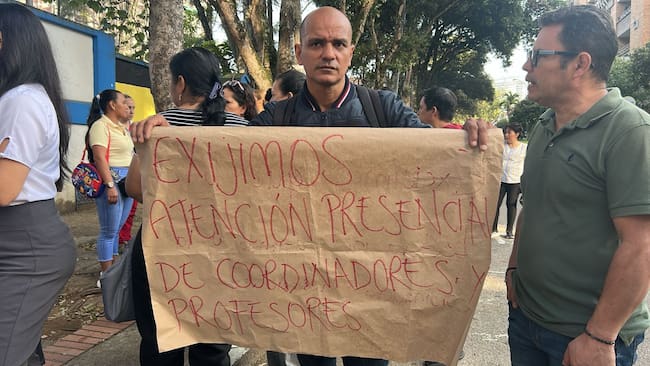 EXIJIMOS
ATENCIÓN PRESENCIAL
DE COORDINADORES Y
PROFESORES